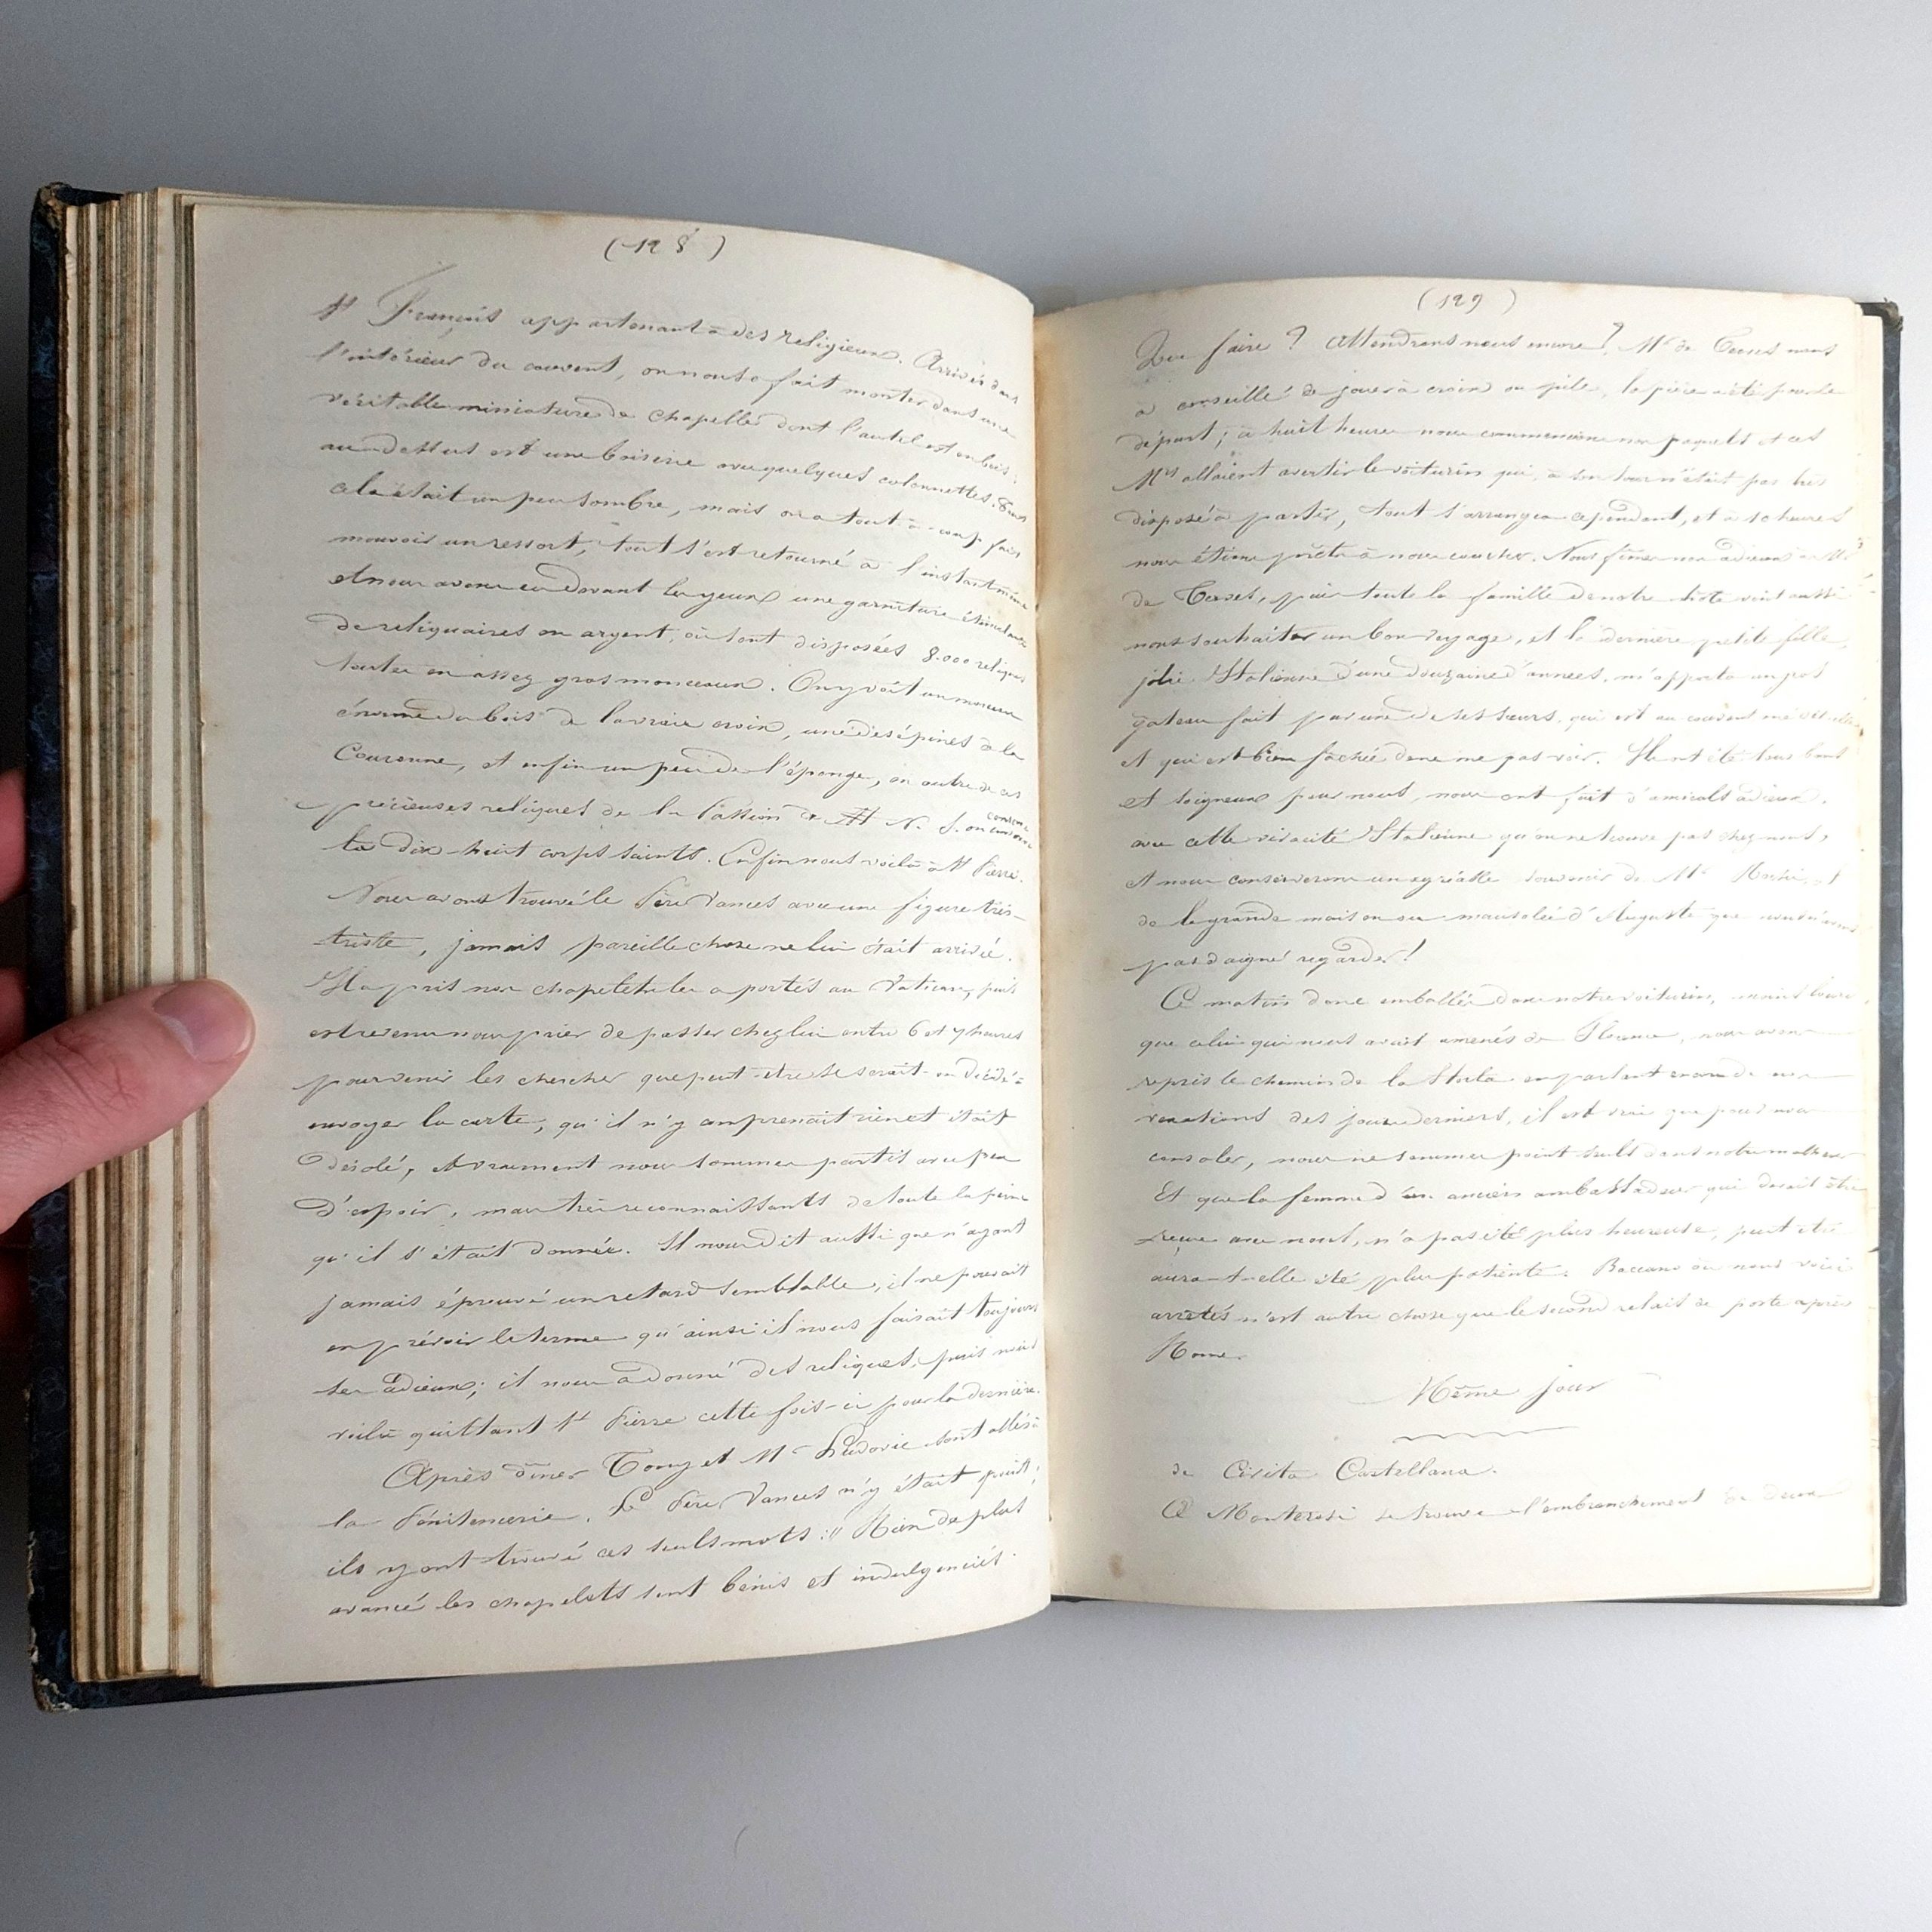 (128)
St François appartenant à des religieux. Arrivés dans
l'intérieur du couvent, on nous a fait monter dans une
véritable miniature de chapelle dont l'autel est en bois;
au dessus est une boiserie avec quelques colonnettes. Tout
cela était un peu sombre, mais on a tout à coup fait
mouvoir un ressort, tout s'est retourné à l'instant même
et nous avons eu devant les yeux une garniture étincelante
de reliquaires en argent, où sont disposées 8.000 reliques
toutes en assez gros morceaux. On y voit un morceau
énorme du bois de la vraie croix, une des épines de la
Couronne, et enfin un peu de l'éponge, en outre de ces
précieuses reliques de la Passion de N. S. on
dix-huit corps saints. Enfin nous voilà à St Pierre.
Nous avons trouvé le Père Vances avec une figure très
triste, jamais pareille chose ne lui était arrivée.
Il a pris nos chapelets les a portés au Vatican, puis
est revenu nous prier de passer chez lui entre 6 et 7 heures
pour venir les chercher que peut-être se serait-on décidé à
envoyer la carte, qu'il n'y comprenait rien et était
désolé, et vraiment nous sommes partis avec peu
d'espoir, mais très reconnaissants de toute la peine
qu'il s'était donnée. Il nous dit aussi que n'ayant
jamais éprouvé un retard semblable, il ne pouvait
en prévoir le terme qu'ainsi il nous faisait toujours
ses adieux; il nous a donné des reliques, puis nous
voilà quittant St Pierre cette fois-ci pour la dernière.
Après dîner Tony et Mr Ludovic sont allés à
la Pénitencerie. Le Père Vances n'y était point;
ils y ont trouvé ces seuls mots : " Rien de plus
avancé les chapelets sont bénis et indulgenciés.
(129)
Que faire ? Attendrons nous encore ? Mr de nous
a conseillé de jouer à croix ou pile, la pièce a été pour le
départ; à huit heures nous commencions nos paquets et ces
Mrs allaient avertir le voiturin qui, à son tour n'était pas très
disposé à partir, tout s'arrangea cependant, et à 10 heures
nous étions prêts à nous coucher. Nous fîmes nos adieux à Mr
de puis toute la famille de notre hôte vint aussi
nous souhaiter un bon voyage, et la dernière petite fille,
jolie Italienne d'une douzaine d'années, m'apporta un gros
gâteau fait par une de ses sœurs, qui est au couvent
et qui est bien fâchée de ne me pas voir. Ils ont été tous bons
et soigneux pour nous, nous ont fait d'amicals adieux,
avec cette vivacité Italienne qu'on ne trouve pas chez nous,
et nous conserverons un agréable souvenir de Mr et
de la grande maison au mausolée d'Auguste que nous n'avons
pas daigné regarder !
Ce matin donc emballés dans notre voiturin, moins bon
que celui qui nous avait amenés de Florence, nous avons
repris le chemin de la Storta en parlant encore de nos
vexations des jours derniers, il est vrai que pour nous
consoler, nous ne sommes point seuls dans notre malheur
Et que la femme d'un ancien ambassadeur qui devait être
reçue avec nous, n'a pas été plus heureuse, peut être
aura-t-elle été plus patiente. Baccano où nous voici
arrêtés n'est autre chose que le second relais de poste après
Rome.
Même jour
de Civita Castellana.
A Monterosi se trouve l'embranchement de deux